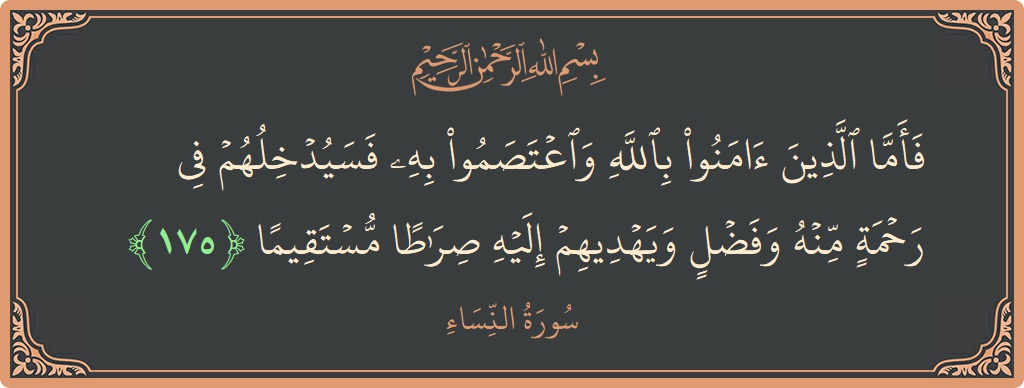 بِسْمِ اللَّهِ الرَّحْمَٰنِ الرَّحِيمِ
فَأَمَّا ٱلَّذِينَ ءَامَنُوا۟ بِٱللَّهِ وَٱعْتَصَمُوا۟ بِهِۦ فَسَيُدْخِلُهُمْ فِى
رَحْمَةٍ مِّنْهُ وَفَضْلٍ وَيَهْدِيهِمْ إِلَيْهِ صِرَٰطًا مُّسْتَقِيمًا ﴿١٧٥﴾
سُورَةُ النِّسَاءِ